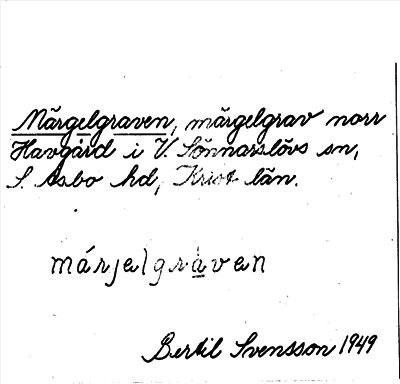 Märgelgraven, märgelgrav norr
Havgård i V. Sönnarslövs sn,
S. Åsbo hd, Krist län.
márjelgràven
Bertil Svensson 1949